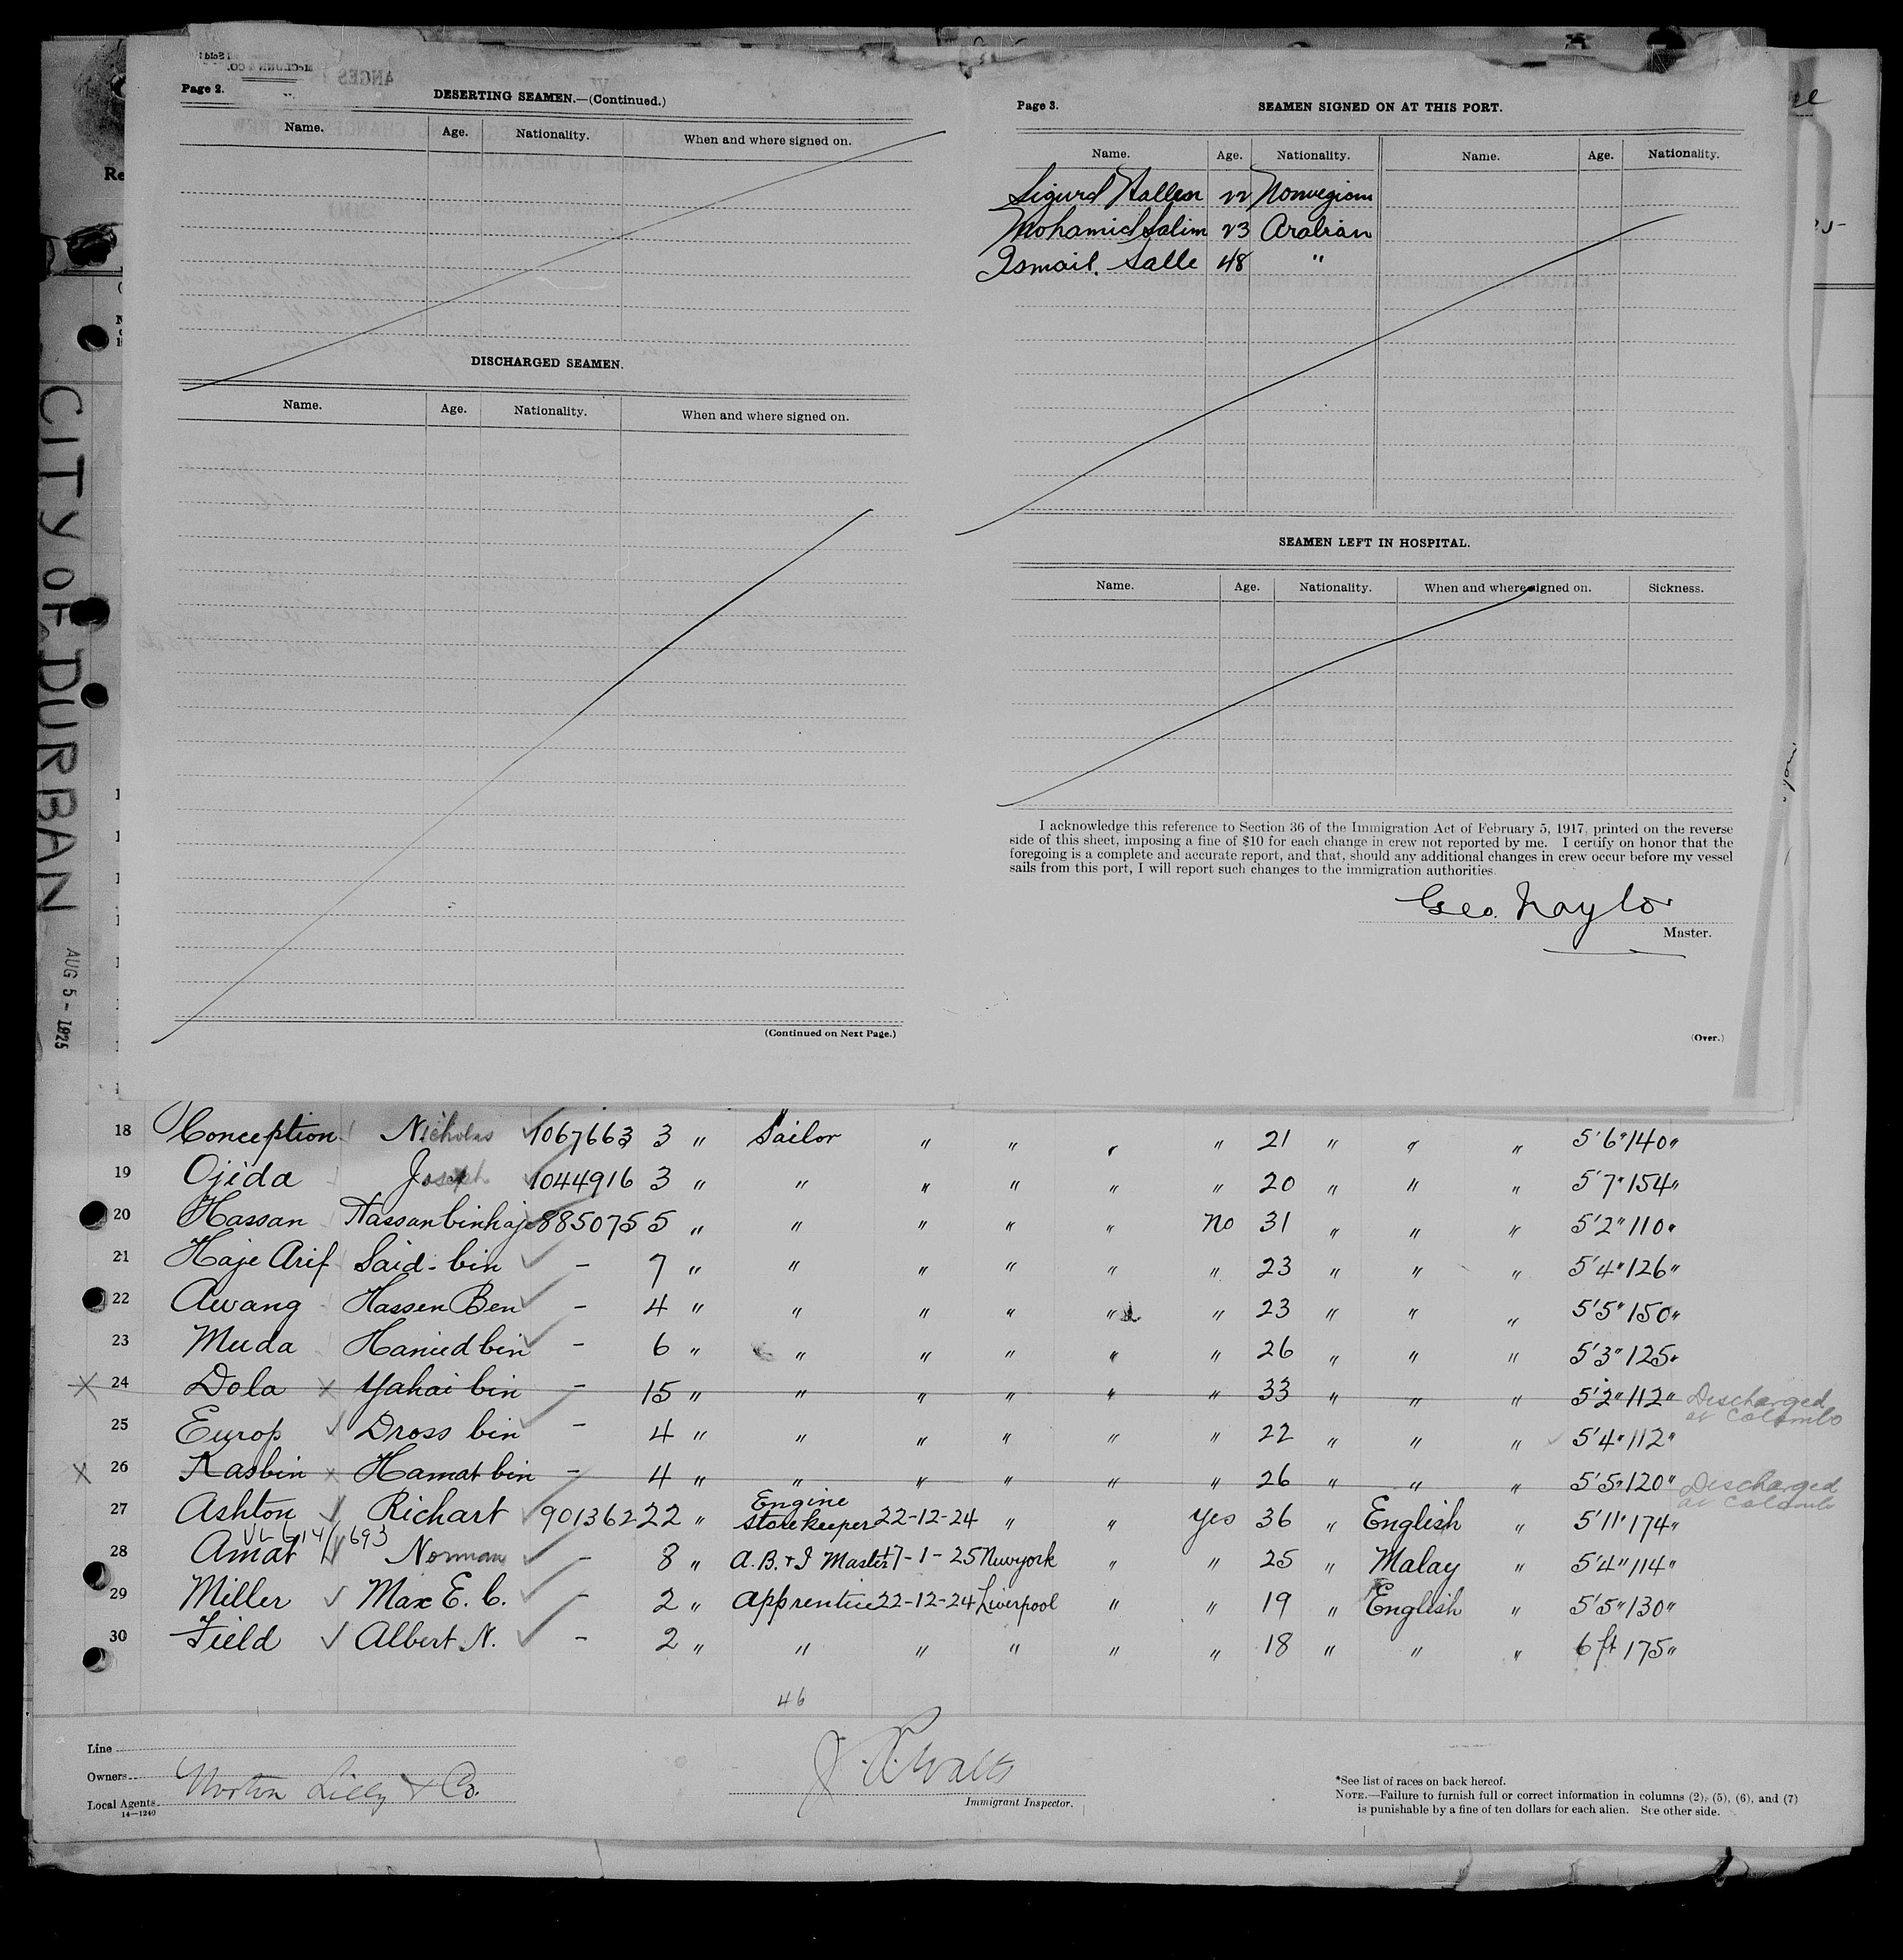 CITY OF DURBAN
AUG 5 - 1925
Page 2.
DESERTING SEAMEN.—(Continued.)
Name. Age. Nationality. When and where signed on.
DISCHARGED SEAMEN.
Name. Age. Nationality. When and where signed on.
(Continued on Next Page.)
Page 3.
SEAMEN SIGNED ON AT THIS PORT.
Name. Age. Nationality. Name. Age. Nationality.
Sigurd Hallen 22 Norwegian
Mohamid Salim 23 Arabian
Ismail. Salle 48 "
SEAMEN LEFT IN HOSPITAL.
Name. Age. Nationality. When and where signed on. Sickness.
I acknowledge this reference to Section 36 of the Immigration Act of February 5, 1917, printed on the reverse
side of this sheet, imposing a fine of $10 for each change in crew not reported by me. I certify on honor that the
foregoing is a complete and accurate report, and that, should any additional changes in crew occur before my vessel
sails from this port, I will report such changes to the immigration authorities.
Geo. Naylor
Master.
(Over.)
18 Conception Nicholas 1067663 3 " Sailor " " " " 21 " " " 5'6" 140"
19 Ojida Joseph 1044916 3 " " " " " " 20 " " " 5'7" 154"
20 Hassan Hassan bin haj 885075 5 " " " " " no 31 " " " 5'2" 110"
21 Haje Arif Said-bin - 7 " " " " " " 23 " " " 5'4" 126"
22 Awang Hassen Ben - 4 " " " " " " 23 " " " 5'5" 150"
23 Muda Hamid bin - 6 " " " " " " 26 " " " 5'3" 125"
24 Dola x Yahai bin - 15 " " " " " " 33 " " " 5'2" 112" Discharged
at Colombo
25 Europ Dross bin - 4 " " " " " " 22 " " " 5'4" 112"
26 Kasbin x Hamat bin - 4 " " " " " " 26 " " " 5'5" 120" Discharged
at Colombo
27 Ashton Richart 901362 22 " Engine
Storekeeper 22-12-24 " " Yes 36 " English " 5'11" 174"
28 Amat Norman - 8 " A.B. + I Master 17-1-25 Newyork " " 25 " Malay " 5'4" 114"
29 Miller Max E. C. - 2 " Apprentice 22-12-24 Liverpool " " 19 " English " 5'5" 130"
30 Field Albert N. - 2 " " " " " " 18 " " " 6 ft 175"
46
Line
Owners
Local Agents Norton Lilly & Co.
14—1240
Immigrant Inspector.
*See list of races on back hereof.
NOTE.—Failure to furnish full or correct information in columns (2), (5), (6), and (7)
is punishable by a fine of ten dollars for each alien. See other side.